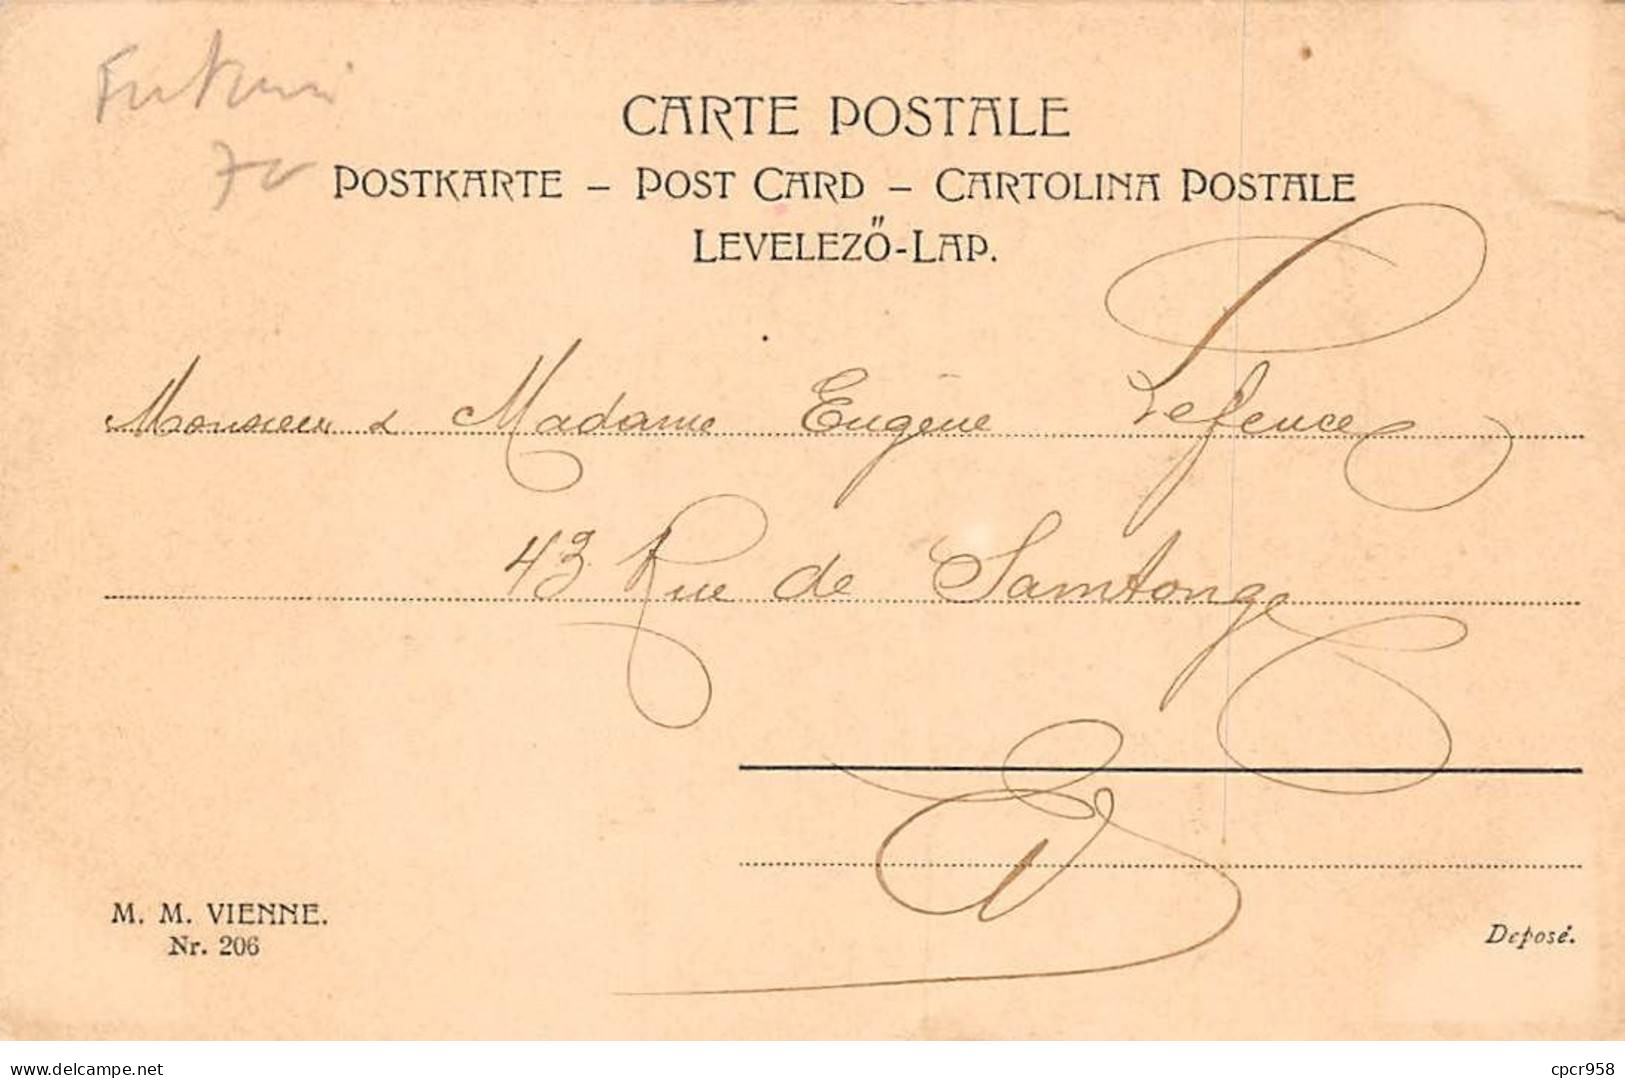 CARTE POSTALE
POSTKARTE – POST CARD – CARTOLINA POSTALE
LEVELEZŐ-LAP.
Monsieur & Madame Eugène
43 Rue de Samtonge
M. M. VIENNE.
Nr. 206
Deposé.
delcampe.net
cpcr958